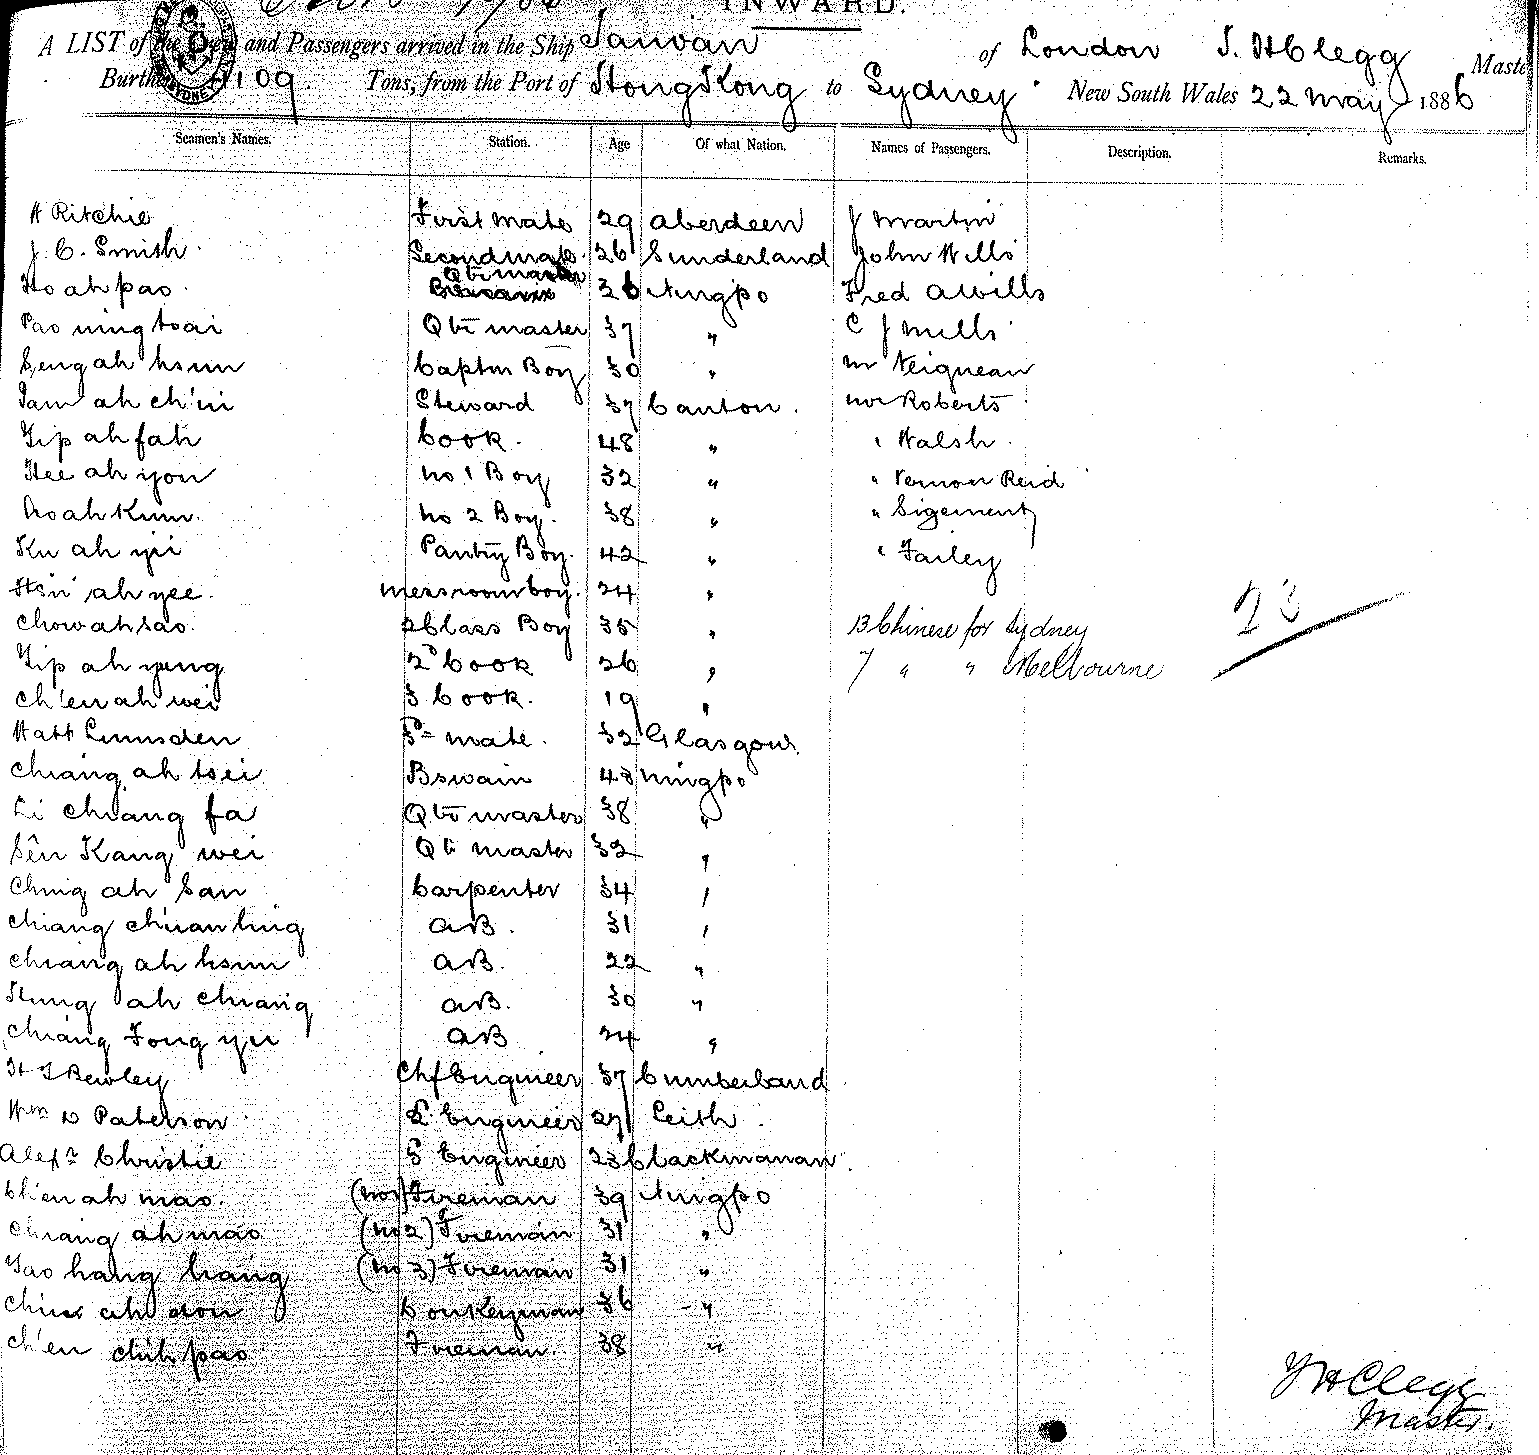 INWARD.
A LIST of the and Passengers arrived in the Ship Taiwan of London J. H Clegg Maste
Burth 1109 Tons, from the Port of Hong Kong to Sydney New South Wales 22 May 1886
Seamen's Names. Station. Age Of what Nation. Names of Passengers. Description. Remarks.
A Ritchie First Mate 29 Aberdeen J Martin
J. C. Smith Second mate 26 Sunderland John Wills
Ho ah pao Qtr master 36 Ningpo Fred A Wills
Pao ning tsai Qtr master 37 " C J Mills
Seng ah hsun Captn Boy 30 " Mr
Tam ah ch'ui Steward 37 Canton. Mr Roberts
Yip ah fah Cook. 48 " " Walsh
Hee ah yon No 1 Boy 32 " " Vernon Reid
Ho ah Kum. No 2 Boy. 38 " " Sigement
Ku ah yii Pantry Boy. 42 " " Failey
Hsii ah yee. Messroom boy. 24 "
Chow ah sao. 2 Class Boy 35 " 13 Chinese for Sydney
Yip ah yung 2d Cook 26 " 7 " " Melbourne
Ch'en ah wei 3 Cook. 19 "
Matt Lumsden 3d mate. 32 Glasgow.
Chiang ah tsei Bswain 43 Ningpo
Li chiang fa Qtr master 38 "
Sên Kang wei Qtr master 32 "
Ching ah San Carpenter 34 "
Chiang chuan ling AB. 31 "
Chiang ah hsun AB. 22 "
Hung ah chiang AB. 30 "
Chiang Fong yu AB 24 "
H T Bewley Chf Engineer 37 Cumberland
Wm D Paterson 2d Engineer 27 Leith.
Alexr Christie 3 Engineer 23 Clackmanan.
Ch'en ah mao. (No1) Fireman 39 Ningpo
Chiang ah mao (No 2) Fireman 31 "
Yao hang hang (No 3) Fireman 31 "
ah Donkeyman 36 "
Ch'en chih pao Fireman. 38 "
J H Clegg
Master.